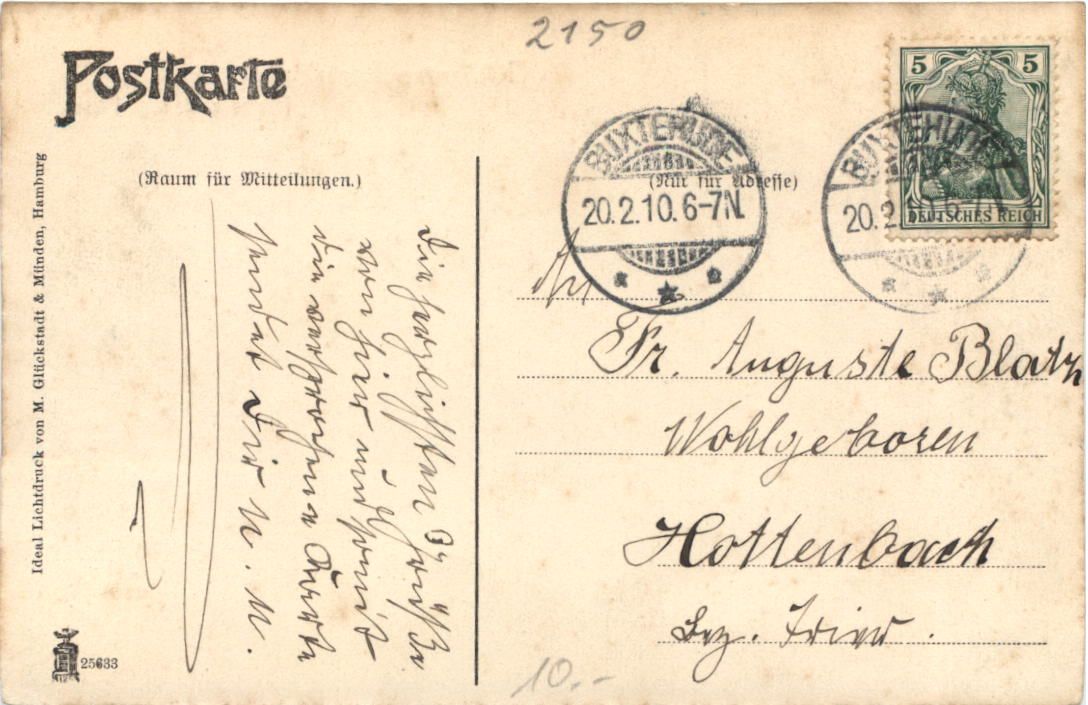 2150
Postkarte
(Raum für Mitteilungen.)
Die herzlichsten Grüße
von hier und somit
die versprochene Karte
sendet Dir M. M.
Ideal Lichtdruck von M. Glückstadt & Münden, Hamburg
25633
5 5
DEUTSCHES REICH
BUXTEHUDE
20.2.10.6-7N.
BUXTEHUDE
20.2.10.6-7N.
(Nur für Adresse)
An
Fr. Auguste Blatz
Wohlgeboren
Hottenbach
Bez. Trier.
10.--